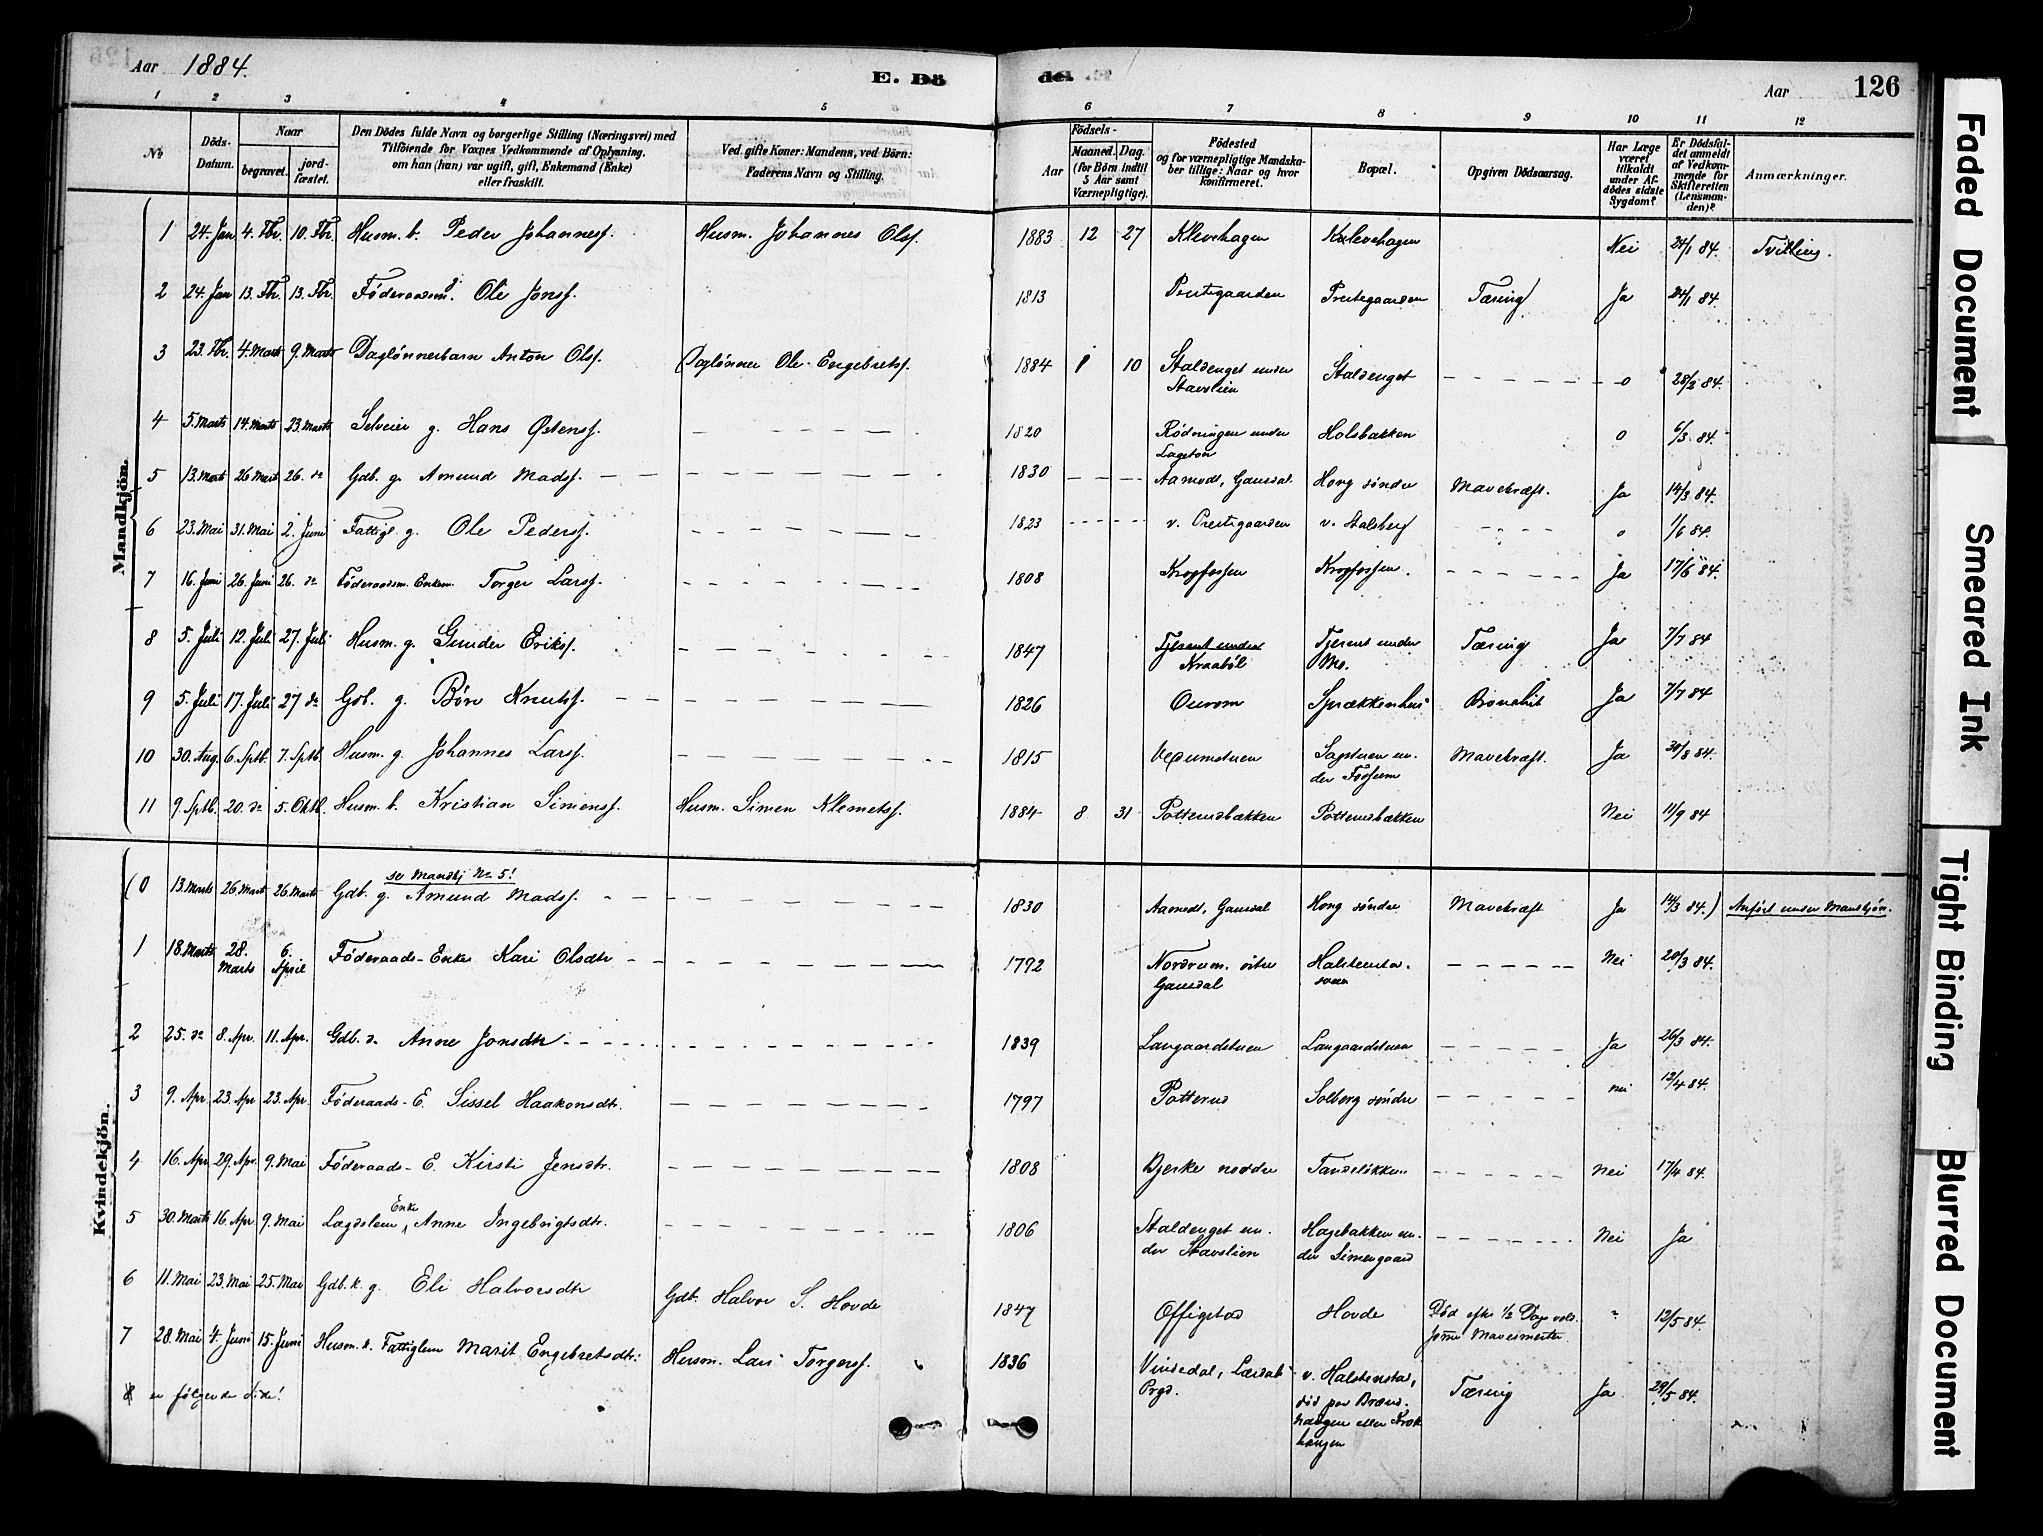 Aar 1884.
E. Dö
de.
Aar
126
1 2 3 4 5 6 7 8 9 10 11 12
№
Döds-Datum.
Naar
begravet.
jord-fæstet.
Den Dödes fulde Navn og borgerlige Stilling (Næringsvei) med
Tilföiende for Voxnes Vedkommende af Oplysning,
om han (hun) var ugift, gift, Enkemand (Enke)
eller fraskilt.
Ved gifte Koner: Mandens, ved Börn:
Faderens Navn og Stilling.
Födsels-
Aar
Maaned. Dag.
(for Børn indtil
5 Aar samt
Værnepligtige).
Födested
og for værnepligtige Mandska-
ber tillige: Naar og hvor
konfirmeret.
Bopæl.
Opgiven Dödsaarsag.
Har Læge
været
tilkaldt
under Af-
dödes sidste
Sygdom?
Er Dödsfal-
det anmeldt
af Vedkom-
mende for
Skifteretten
(Lensman-
den)?
Anmærkninger.
Mandkjön.
1 24. Jan 4. Fbr. 10. Fbr. Husm. b. Peder Johannesf. Husm. Johannes Olsf. 1883 12 27 Klevehagen Klevehagen Nei 24/1 84. Tvilling.
2 24. Jan 13. Fbr. 13. Fbr. Föderaadsm. Ole Jonsf. 1813 Prestegaarden Prestegaarden Tæring Ja 24/1 84
3 23. Fbr. 4. Marts 9. Marts Daglønnerbarn Anton Olsf. Daglønner Ole Engebretsf. 1884 1 10 Staldenget under Stavslien Staldenget o 28/2 84.
4 5. Marts 14. Marts 23. Marts Selveier g. Hans Østensf. 1820 Rødningen under Holsbakken o 6/3 84.
5 13. Mart 26 Mart 26. do Gdb. g. Amund Madsf. 1830 Aamodt, Gausdal Hong søndre Mavekræft. Ja 14/3 84.
6 23. Mai 31. Mai 2. Juni Fattigl. g. Ole Pedersf. 1823 v. Prestegaarden v. Stalsberg o 1/6 84.
7 16. Juni 26. Juni 26. do Föderaadsm. Enkem. Torger Larsf. 1808 Kropfossen Kropfossen. Ja 17/6 84.
8 5. Juli 12. Juli 27. Juli Husm. g. Gunder Eriksf. 1847 Tjerent under Kraabøl Tjerent under Mo. Tæring Ja 7/7 84
9 5. Juli 17. Juli 27 do Gdb. g. Böre Knutsf. 1826 Ourom Sprækkenhus Bronchit Ja 7/7 84
10 30. Aug. 6. Sptb. 7. Sptb. Husm. g. Johannes Larsf. 1815 Vexumstuen Sagstuen under Fossum Mavekræft. Ja 30/8 84.
11 9. Sptb. 20. do 5. Oktb. Husm. b. Kristian Simensf. Husm. Simen Klemetsf. 1884 8 31 Potterudbækken Potterudbækken Nei 11/9 84
Kvindekjön.
se Mandkj No 5!
(0 13. Marts 26. Mart 26. Marts Gdb. g. Amund Madsf. 1830 Aamodt, Gausdal Hong søndre Mavekræft Ja 14/3 84.) Anført under Mandkjøn.
1 18. Marts 28. Marts 6. April Föderaads-Enke Kari Olsdtr 1792 Nordrum. østre Gausdal Halstenstad Nei 20/3 84.
2 25. do 8. Apr. 11. Apr. Gdb. d. Anne Jonsdtr 1839 Langaardstuen Langaardstuen Ja 26/3 84.
3 9. Apr 23. Apr 23. Apr. Föderaads-E. Sissel Haakonsdtr. 1797 Potterud Solberg søndre nei 12/4 84.
4 16. Apr 29. Apr. 9. Mai Föderaads-E. Kirsti Jensdtr. 1808 Bjerke nordre Nei 17/4 84.
5 30. Marts 16. Apr. 9. Mai Lægdslem Enke Anne Ingebrigtsdtr. 1806 Staldenget under Stavslien Hagebakken under Simengaard Nei Ja
6 11. Mai 23. Mai 25. Mai Gdb. k. g. Eli Halvorsdtr Gdb. Halvor S. Hovde 1847 Offigstad Hovde Död efter 1/2 Dags voldsomme Mavesmerter. " 12/5 84.
7 28. Mai 4. Juni 15. Juni Husm. k. Fattiglem Marit Engebretsdtr. Husm. Lars Torgersf. 1836 Vindedal, Lærdals Prgd. v. Halstenstad, død paa Brændhaugen eller Krokhaugen Tæring Ja 29/5 84.
8 er følgende Side!
Faded Document
Smeared Ink
Tight Binding
Blurred Document